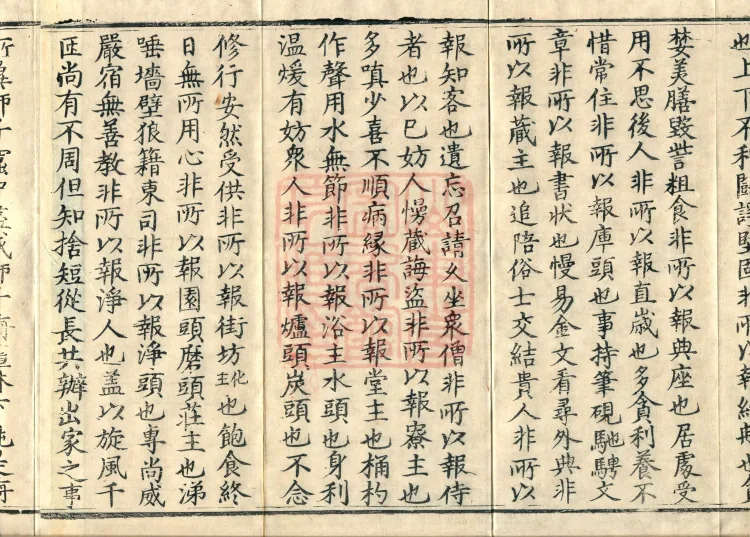 也上下不和鬪諍堅固非所以報
婪美膳毀訾粗食非所以報典座也居處受
用不思後人非所以報直歲也多貪利養不
惜常住非所以報庫頭也事持筆硯馳騁文
章非所以報書狀也慢易金文看尋外典非
所以報藏主也追陪俗士交結貴人非所以
報知客也遺忘召請久坐衆僧非所以報侍
者也以巳妨人慢藏誨盜非所以報寮主也
多嗔少喜不順病緣非所以報堂主也桶杓
作聲用水無節非所以報浴主水頭也身利
温煖有妨衆人非所以報爐頭炭頭也不念
修行安然受供非所以報街坊化主也飽食終
日無所用心非所以報園頭磨頭莊主也涕
唾墻壁狼籍東司非所以報淨頭也專尚威
嚴宿無善教非所以報淨人也盖以旋風千
匝尚有不周但知捨短從長共辦出家之事